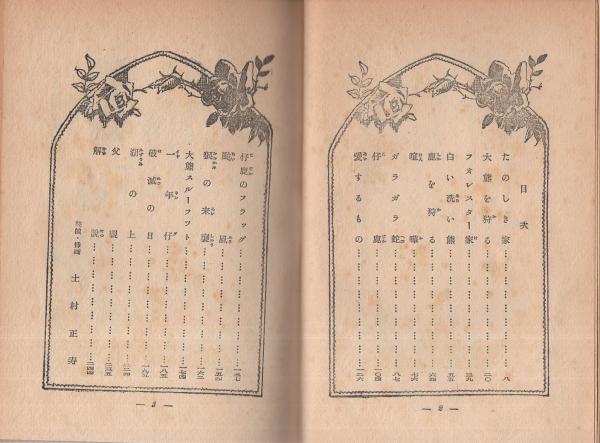 目次
たのしき家……八
大熊を狩る……二〇
フオレスター家……三九
白い洗い熊……五五
鹿を狩る……六四
喧嘩……七六
ガラガラ蛇……八七
仔鹿……一〇四
愛するもの……一二六
— 2 —
仔鹿のフラッグ……一三七
颱風……一五四
狼の来襲……一六三
大熊スルーフツト……一七四
一年仔……一八五
破滅の日……一九六
湖の上……
父親……二三五
解説……二四四
装幀・挿画 土村正寿
— 3 —